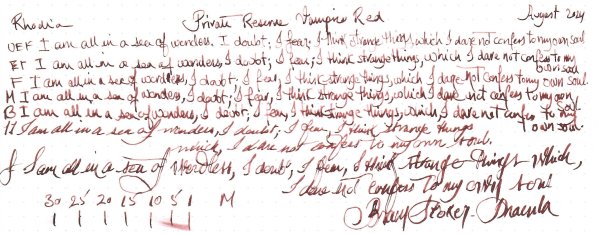 Rhodia Private Reserve Vampire Red August 2024
UEF I am all in a sea of wonders. I doubt; I fear; I think strange things, which I dare not confess to my own soul.
EF I am all in a sea of wonders, I doubt; I fear; I think strange things, which I dare not confess to my own soul.
F I am all in a sea of wonders, I doubt; I fear, I think strange things, which I dare not confess to my own soul.
M I am all in a sea of wonders, I doubt; I fear, I think strange things, which I dare not confess to my own soul.
B I am all in a sea of wonders, I doubt, I fear, I think strange things, which, I dare not confess to my own soul.
I am all in a sea of wonders, I doubt, I fear, I think strange things
which, I dare not confess to my own soul.
I am all in a sea of wonders, I doubt, I fear, I think strange things which,
I dare not confess to my own soul
30 25 20 15 10 5 1 M
1 1 1 1 1 1 1
Bram Stoker. Dracula